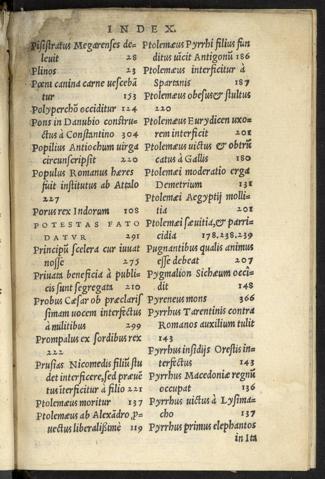 INDEX.
Pisistratus Megarenses de-
leuit 28
Plinos 23
Pœni canina carne uescebã
tur 153
Polyperchō occiditur 124
Pons in Danubio constru-
ctus à Constantino 304
Popilius Antiochum uirga
circunscripsit 220
Populus Romanus hæres
fuit institutus ab Attalo
227
Porus rex Indorum 108
POTESTAS FATO
DATVR 291
Principũ scelera cur iuuat
nosse 275
Priuata beneficia à publi-
cis sunt segregata 210
Probus Cæsar ob præclaris
simam uocem interfectus
à militibus 299
Prompalus ex sordibus rex
222
Prusias Nicomedis filiũ stu
det interficere, sed præuē
tus iterficitur à filio 221
Ptolemæus moritur 137
Ptolemæus ab Alexãdro, p-
uectus liberalißimè 119
Ptolemæus Pyrrhi filius fun
ditus uicit Antigonũ 186
Ptolemæus interficitur à
Spartanis 187
Ptolemæus obesus & stultus
220
Ptolemæus Eurydicen uxo-
rem interficit 201
Ptolemæus uictus & obtrũ
catus à Gallis 180
Ptolemæi moderatio erga
Demetrium 131
Ptolemæi Aegyptij molli-
tia 201
Ptolemæi sæuitia, & parri-
cidia 178.238.239
Pugnantibus qualis animus
esse debeat 207
Pygmalion Sichæum occi-
dit 148
Pyreneus mons 366
Pyrrhus Tarentinis contra
Romanos auxilium tulit
143
Pyrrhus insidijs Orestis in-
terfectus 143
Pyrrhus Macedoniæ regnũ
occupat 136
Pyrrhus uictus à Lysima-
cho 137
Pyrrhus primus elephantos
in Ita